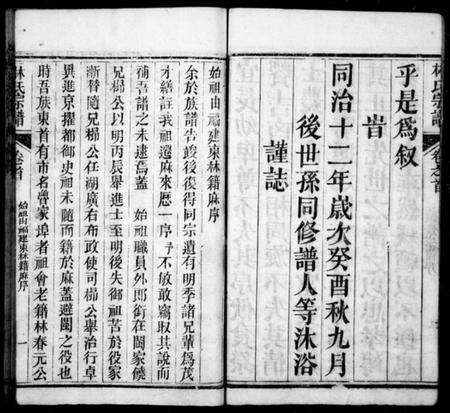 林氏宗譜
卷之首
乎是爲叙
旹
同治十二年歲次癸酉秋九月
後世孫同修譜人等沐浴
謹誌
始祖由福建東林籍麻序
余於族譜告竣後復得同宗遺有明季諸兄輩爲茂
才繕註我祖遷麻來歷一序予不敏敢竊取其說而
補吾譜之未逮焉蓋 始祖職員外郎銜在閩家饒
兄楊公以明丙辰舉進士至明後失御祖苦於役家
漸替隨兄楊公任湖廣右布政使司楊公舉治行卓
異進京擢都御史祖未隨而籍於麻蓋避閩之役也
時吾族東首有市名魯家埠者祖會老籍林春元公
林氏宗譜
卷首
始祖由福建東林籍麻序
一